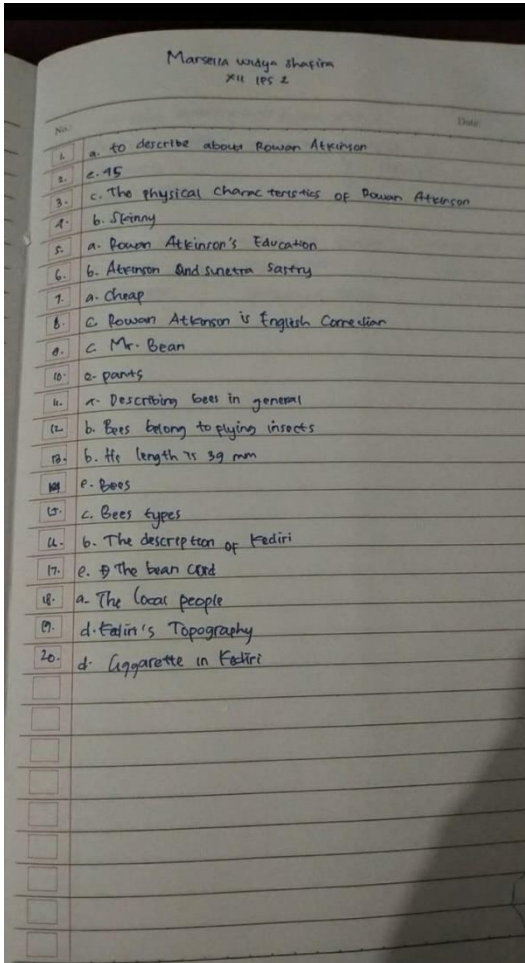 Marsella widya shafira
XII IPS 2
No.: Date:
1. a. to describe about Rowan Atkinson
2. e. 45
3. c. The physical characteristics of Rowan Atkinson
4. b. Skinny
5. a. Rowan Atkinson's Education
6. b. Atkinson and sunetra Sastry
7. a. Cheap
8. c. Rowan Atkinson is English Comedian
9. c. Mr. Bean
10. e. pants
11. a. Describing bees in general
12. b. Bees belong to flying insects
13. b. Its length is 39 mm
14. e. Bees
15. c. Bees types
16. b. The description of Kediri
17. e. The bean curd
18. a. The local people
19. d. Topography
20. d. in Kediri